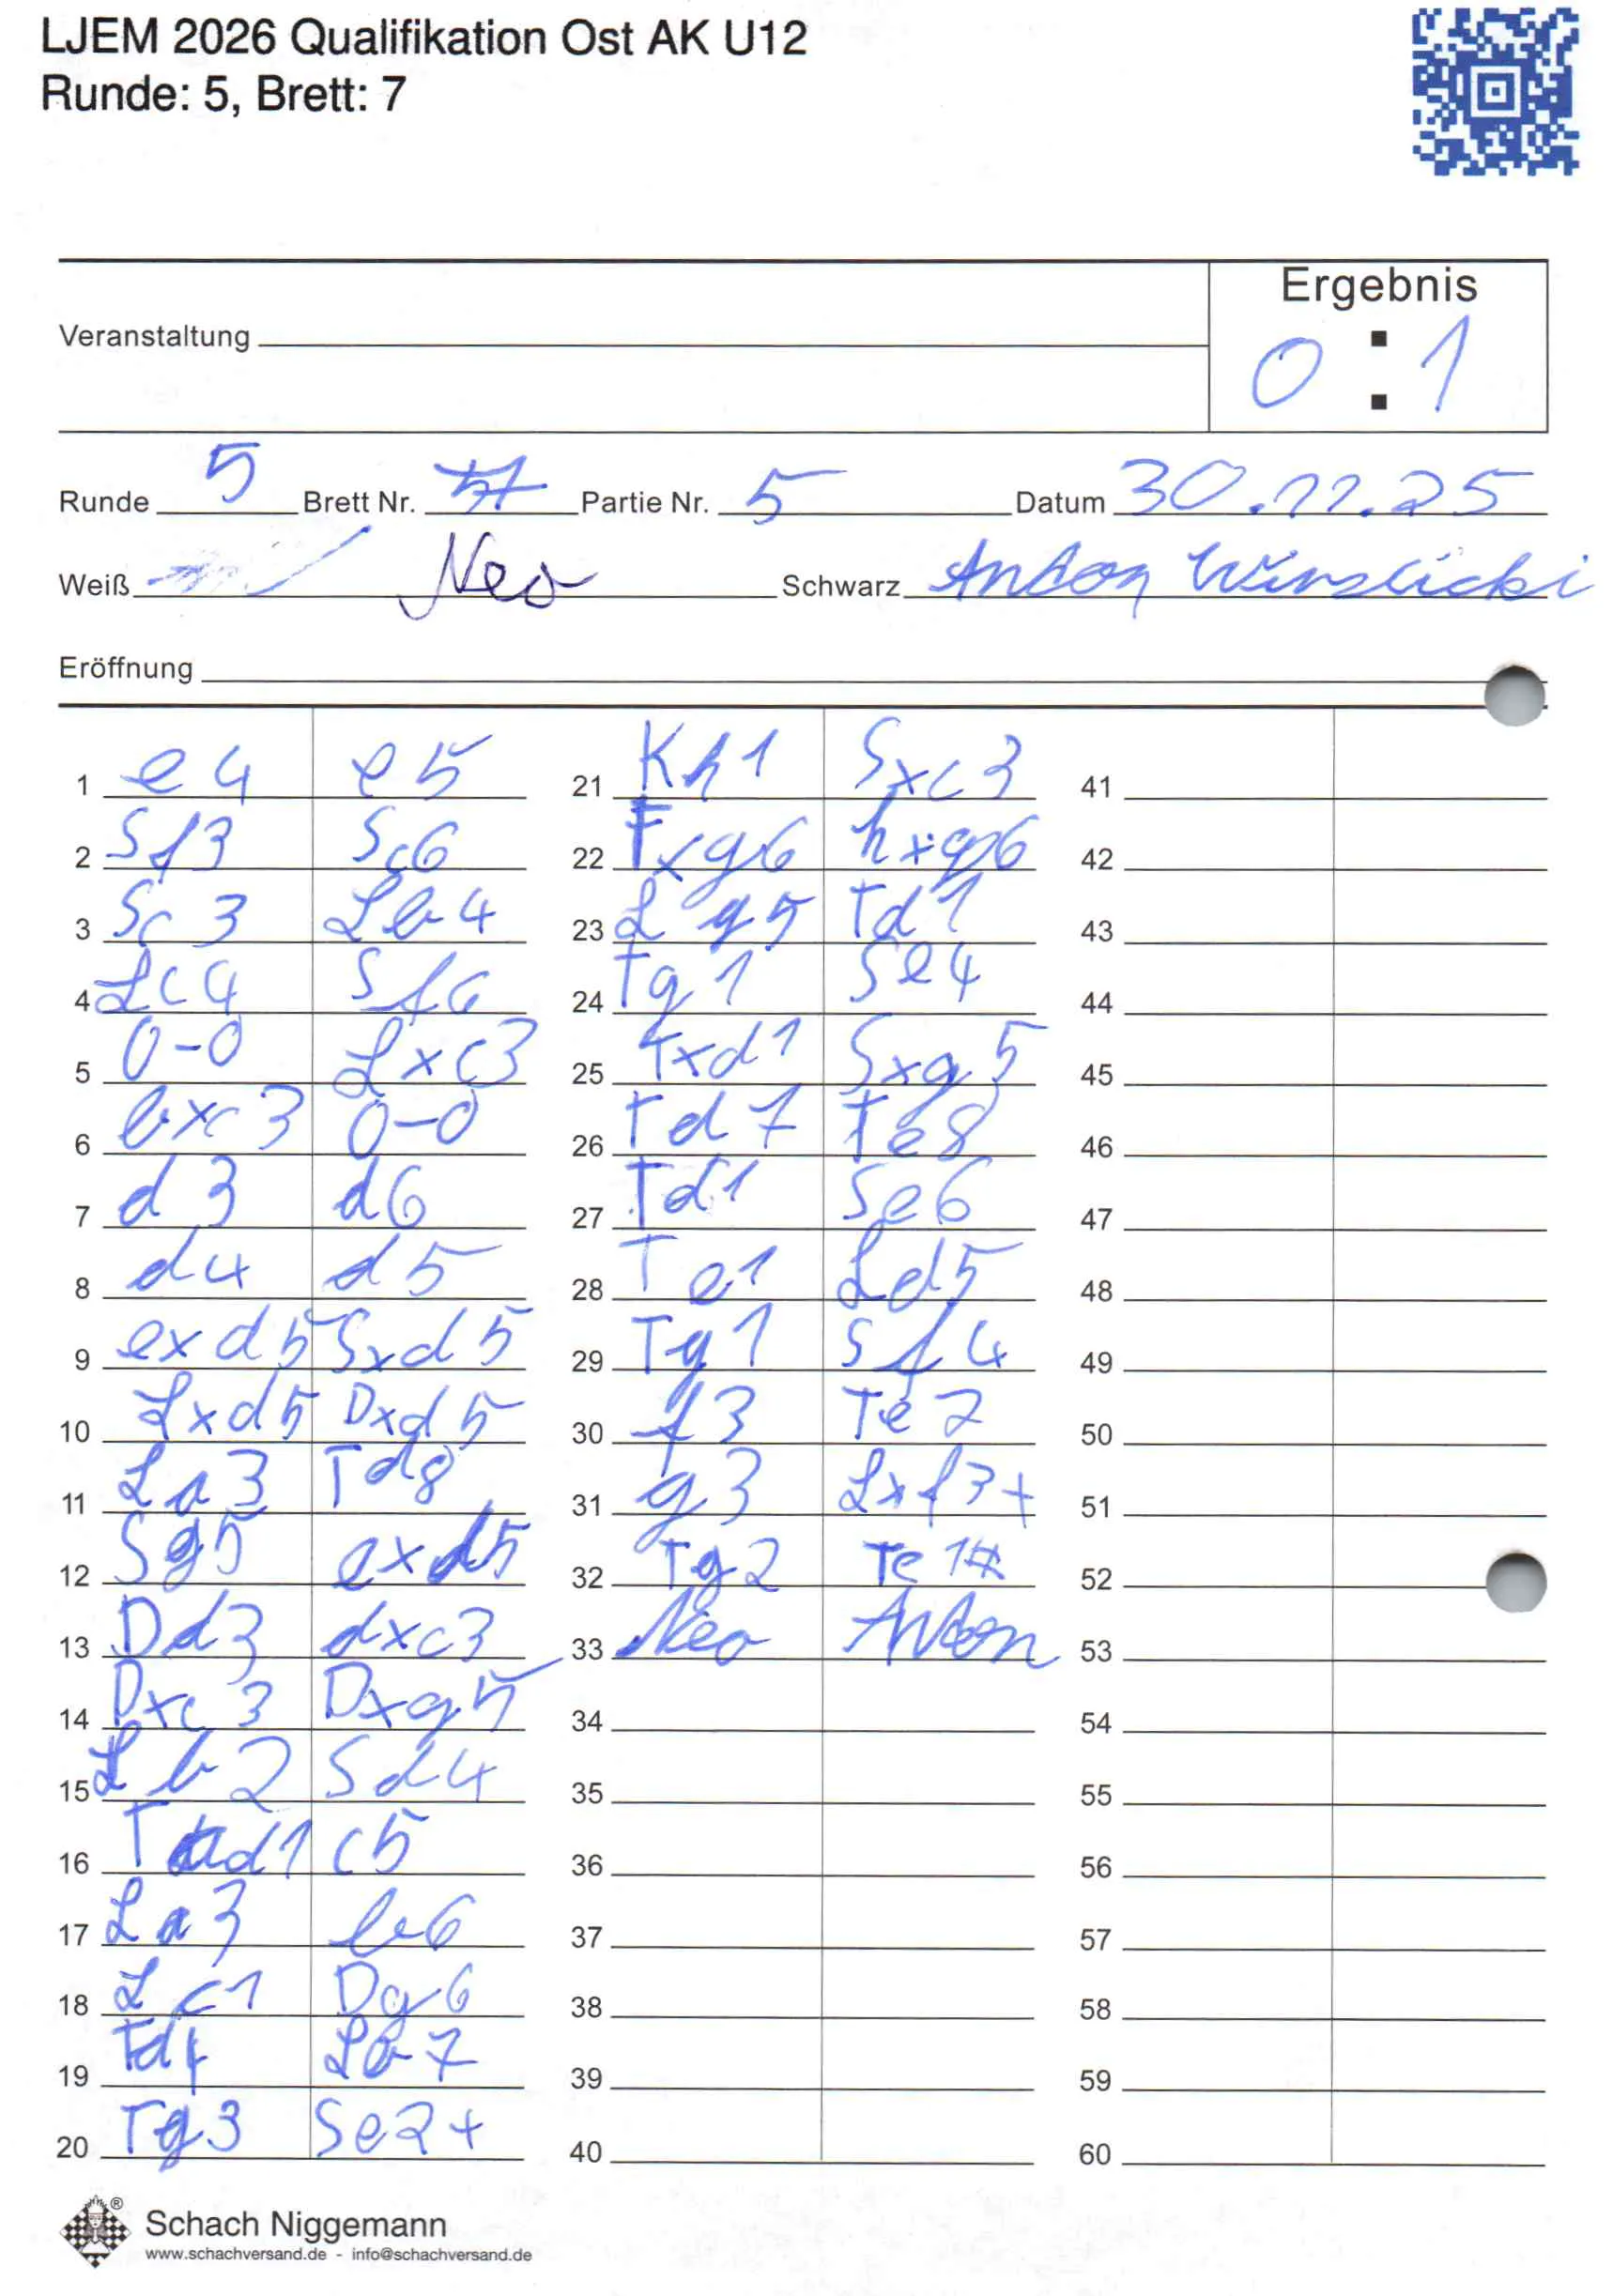 LJEM 2026 Qualifikation Ost AK U12
Runde: 5, Brett: 7
Ergebnis
0 : 1
Veranstaltung
Runde 5 Brett Nr. 7 Partie Nr. 5 Datum 30.11.25
Weiß Neo Schwarz Anton Winslicki
Eröffnung
1 e4 e5
2 Sf3 Sc6
3 Sc3 Lb4
4 Lc4 Sf6
5 0-0 Lxc3
6 bxc3 0-0
7 d3 d6
8 d4 d5
9 exd5 Sxd5
10 Lxd5 Dxd5
11 La3 Td8
12 Sg5 exd5
13 Dd3 dxc3
14 Dxc3 Dxg5
15 Lb2 Sd4
16 Tad1 c5
17 La3 b6
18 Lc1 Dg6
19 Td1 Lb7
20 Tg3 Se2+
21 Kh1 Sxc3
22 Txg6 hxg6
23 Lg5 Td1
24 Tg1 Se4
25 Txd1 Sxg5
26 Td7 Te8
27 Td1 Se6
28 Te1 Ld5
29 Tg1 Sf4
30 f3 Te2
31 g3 Lxf3+
32 Tg2 Te1#
33 Neo Anton
34
35
36
37
38
39
40
41
42
43
44
45
46
47
48
49
50
51
52
53
54
55
56
57
58
59
60
Schach Niggemann
www.schachversand.de - info@schachversand.de